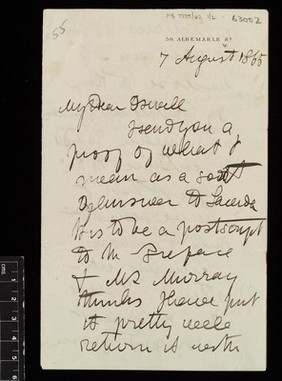 55
MS 7757/62 1/2
63002
50. ALBEMARLE ST
7 August 1865
My Dear Oswell
I send you a
proof of what I
mean as a sort
Delenseer to Lacerda
It is to be a postscript
to the Preface
& Mr Murray
thinks I have put
it pretty well
return it with